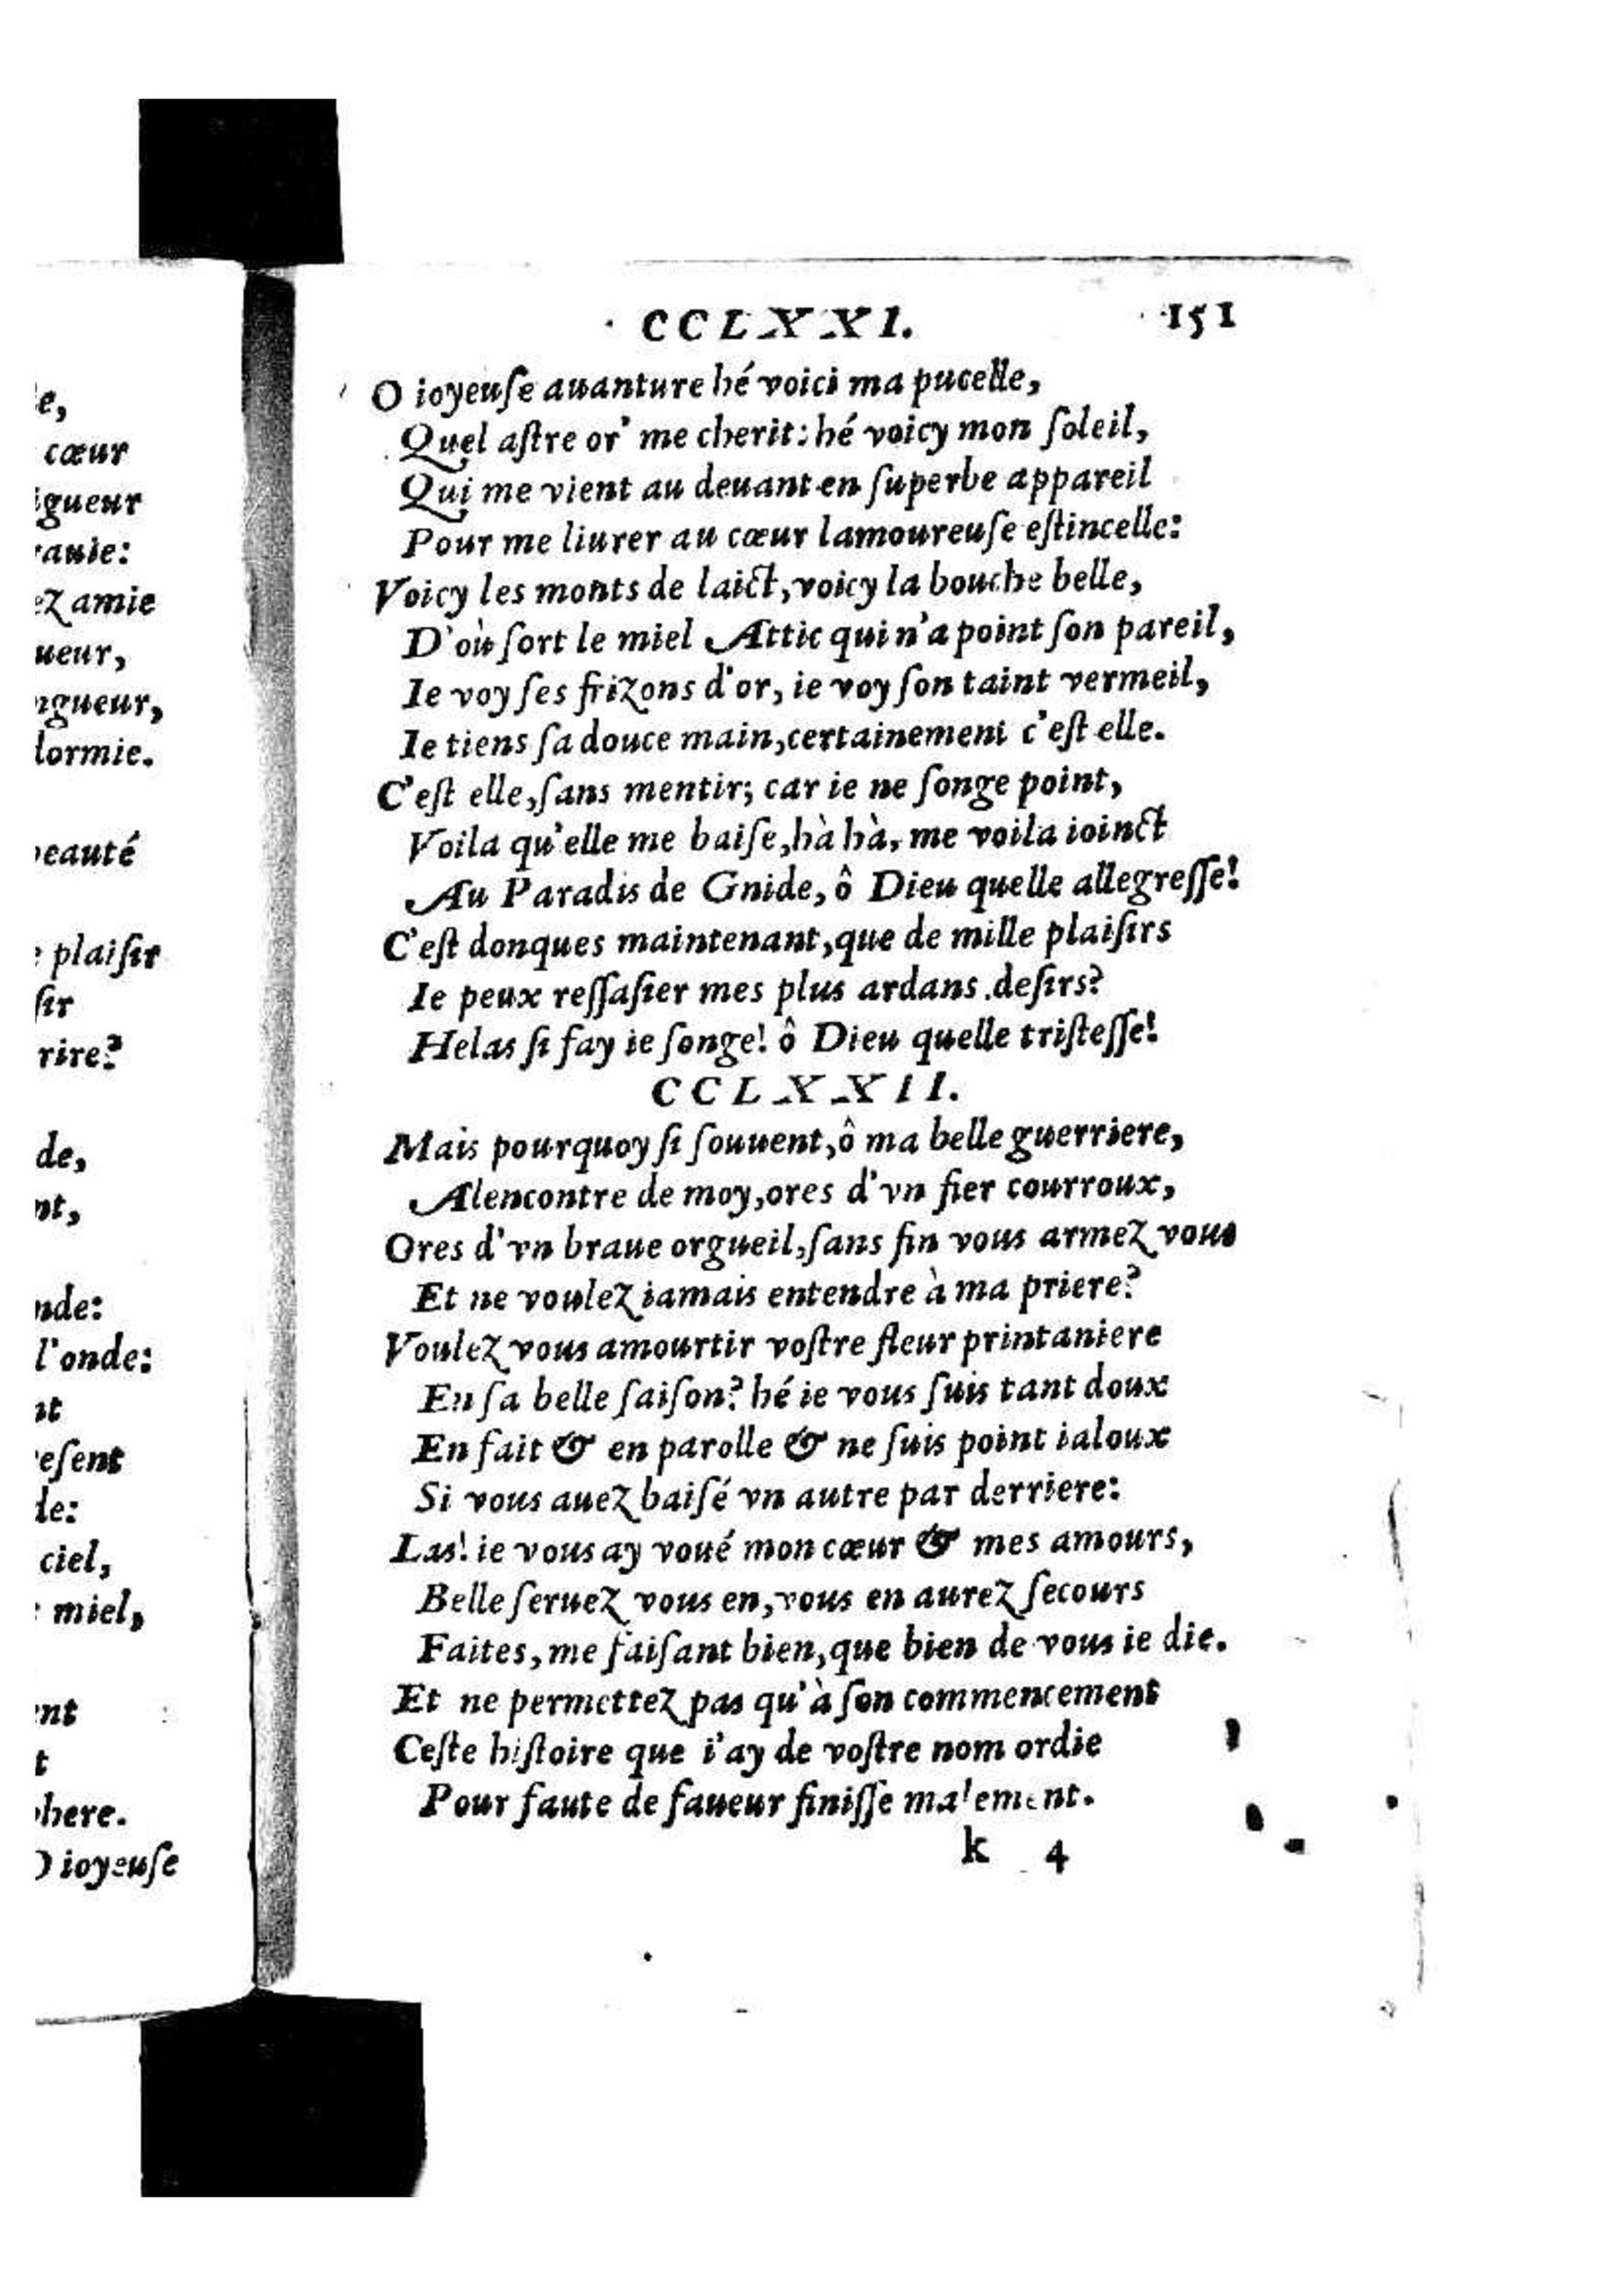 e,
cœur
igueur
rauie:
ez amie
ueur,
ngueur,
dormie.
beauté
e plaiſir
ſir
rire?
de,
nt,
nde:
l'onde:
nt
reſent
de:
ciel,
miel,
ent
t
here.
O ioyeuſe
CCLXXI. 151
O ioyeuſe auanture hé voici ma pucelle,
Quel aſtre or' me cherit: hé voicy mon ſoleil,
Qui me vient au deuant en ſuperbe appareil
Pour me liurer au cœur lamoureuſe eſtincelle:
Voicy les monts de laict, voicy la bouche belle,
D'où ſort le miel Attic qui n'a point ſon pareil,
Ie voy ſes frizons d'or, ie voy ſon taint vermeil,
Ie tiens ſa douce main, certainement c'eſt elle.
C'eſt elle, ſans mentir; car ie ne ſonge point,
Voila qu'elle me baiſe, hà hà, me voila ioinct
Au Paradis de Gnide, ô Dieu quelle allegreſſe!
C'eſt donques maintenant, que de mille plaiſirs
Ie peux reſſaſier mes plus ardans deſirs?
Helas ſi fay ie ſonge! ô Dieu quelle triſteſſe!
CCLXXII.
Mais pourquoy ſi ſouuent, ô ma belle guerriere,
Alencontre de moy, ores d'vn fier courroux,
Ores d'vn braue orgueil, ſans fin vous armez vous
Et ne voulez iamais entendre à ma priere?
Voulez vous amourtir voſtre fleur printaniere
En ſa belle ſaiſon? hé ie vous ſuis tant doux
En fait & en parolle & ne ſuis point ialoux
Si vous auez baiſé vn autre par derriere:
Las! ie vous ay voué mon cœur & mes amours,
Belle ſeruez vous en, vous en aurez ſecours
Faites, me faiſant bien, que bien de vous ie die.
Et ne permettez pas qu'à ſon commencement
Ceſte hiſtoire que i'ay de voſtre nom ordie
Pour faute de faueur finiſſe malement.
k 4